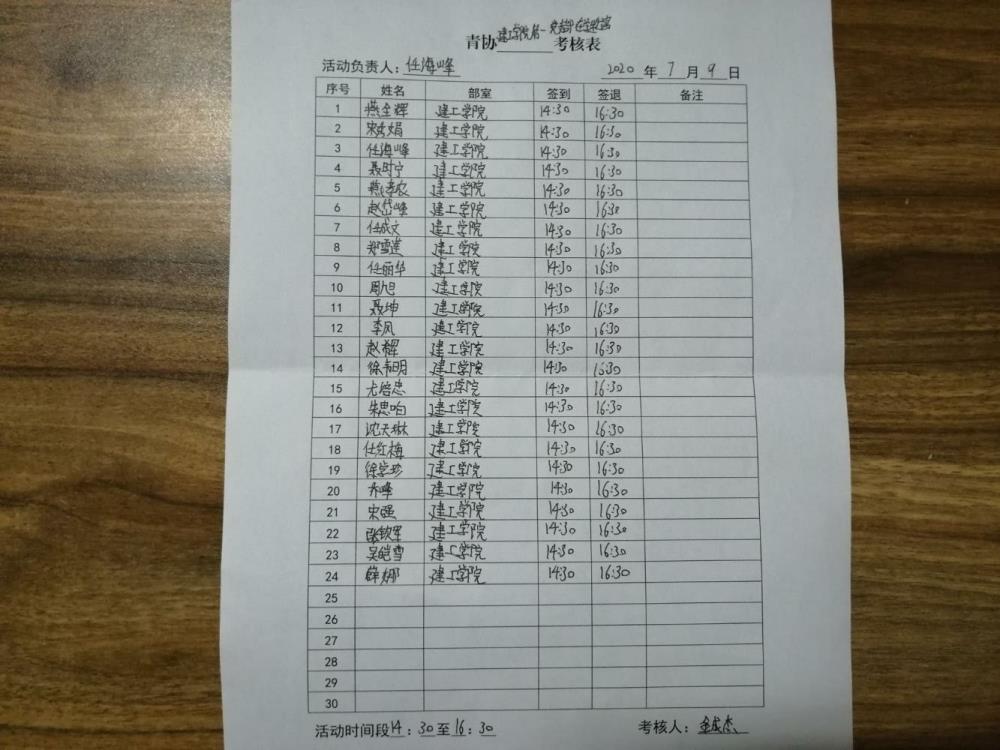 建工学院第一党支部在签到
青协 考核表
活动负责人：任海峰 2020 年 7 月 9 日
序号 姓名 部室 签到 签退 备注
1 燕全辉 建工学院 14:30 16:30
2 宋秀娟 建工学院 14:30 16:30
3 任海峰 建工学院 14:30 16:30
4 聂时宁 建工学院 14:30 16:30
5 建工学院 14:30 16:30
6 赵岱峰 建工学院 14:30 16:30
7 任成文 建工学院 14:30 16:30
8 郑雪莲 建工学院 14:30 16:30
9 任丽华 建工学院 14:30 16:30
10 周旭 建工学院 14:30 16:30
11 聂坤 建工学院 14:30 16:30
12 李风 建工学院 14:30 16:30
13 赵辉 建工学院 14:30 16:30
14 建工学院 14:30 16:30
15 尤培忠 建工学院 14:30 16:30
16 朱思响 建工学院 14:30 16:30
17 沈天琳 建工学院 14:30 16:30
18 任红梅 建工学院 14:30 16:30
19 徐学珍 建工学院 14:30 16:30
20 乔峰 建工学院 14:30 16:30
21 宋强 建工学院 14:30 16:30
22 张钦军 建工学院 14:30 16:30
23 吴皑雪 建工学院 14:30 16:30
24 薛娜 建工学院 14:30 16:30
25
26
27
28
29
30
活动时间段14：30至16：30 考核人：金成杰